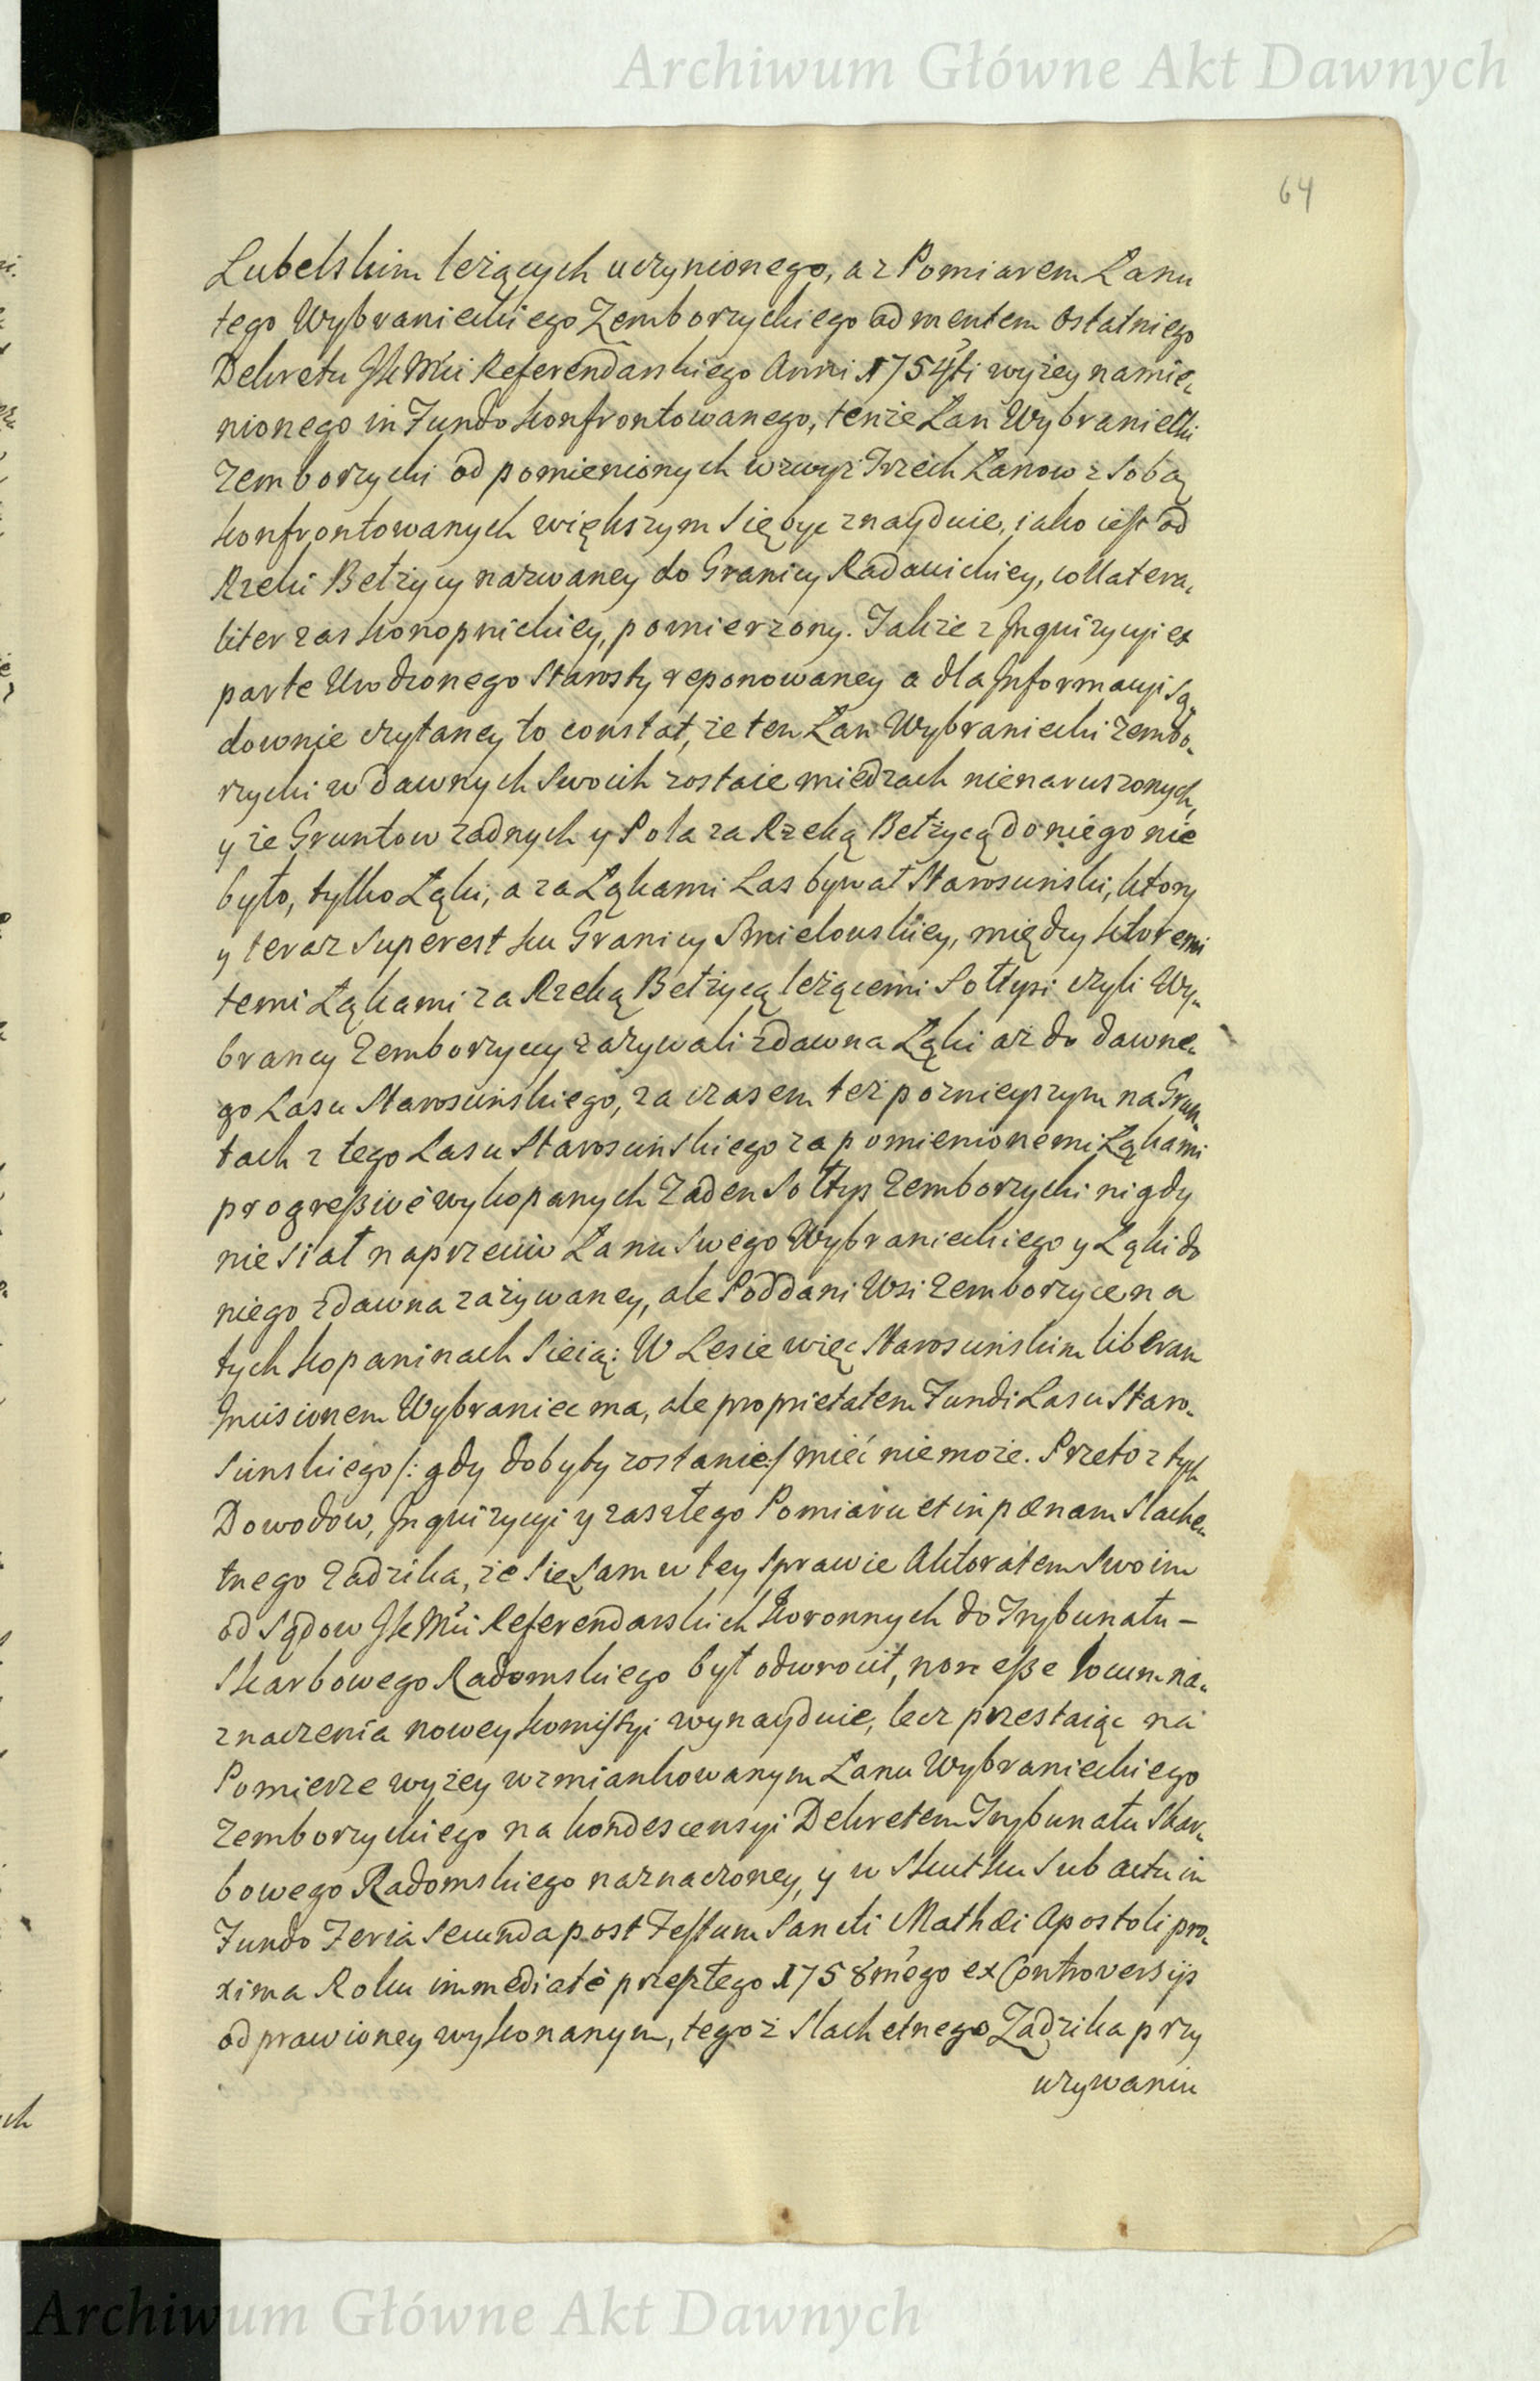 Archiwum Główne Akt Dawnych
64
Lubelskim leżących uczynionego, a z Pomiarem Łanu
tego Wybranieckiego Zemborzyckiego ad mentem Ostatniego
Dekretu JKMci Referendarskiego Anni 1754ti wyżey namie„
nionego in Fundo konfrontowanego, tenże Łan Wybraniecki
Zemborzycki od pomienionych wzwyż Trzech Łanow z sobą
konfrontowanych większym się byc znayduie, iako iest od
Rzeki Bełżycy nazwaney do Granicy Radawickiey, collatera„
liter zas Konopnickiey, pomierzony. Takze z Inquizycyi ex
parte Urodzonego Starosty reponowaney a dla Informacyi Są„
downie czytaney to constat, że ten Łan Wybraniecki Zembo„
rzycki w dawnych Swoich zostaie miedzach nienaruszonych,
y że Gruntow żadnych y Pola za Rzeką Bełżycą do niego nie
było, tylko Łąki, a za Łąkami Las bywał Starosciński, ktory
y teraz Superest ku Granicy Smielowskiey, między ktoremi
temi Łąkami za Rzeką Bełżycą leżącemi Sołtysi czyli Wy„
brancy Zemborzyccy zażywali zdawna Łąki aż do dawne„
go Lasu Staroscinskiego, za czasem też poznieyszym na Grun„
tach z tego Lasu Staroscińskiego za pomienionemi Łąkami
progreßivè wykopanych Żaden Sołtys Zemborzycki nigdy
nie siał naprzeciw Łanu Swego Wybranieckiego y Łąki do
niego zdawna zażywaney, ale Poddani Wsi Zemborzyce na
tych kopaninach Sieią: W Lesie więc Starościnskim liberam
Incisionem Wybraniec ma, ale proprietatem Fundi Lasu Staro„
scinskiego /: gdy dobyty zostanie :/ mieć nie może. Przeto z tych
Dowodow, Inquizycyi y zaszłego Pomiaru et in pœnam Slache„
tnego Zadzika, że się Sam w tey Sprawie Aktoratem Swoim
od Sądow JKMci Referendarskich Koronnych do Trybunału –
Skarbowego Radomskiego był odwrocił, non eße locum na„
znaczenia nowey Komissyi wynayduie, lecz przestaiąc na
Pomierze wyżey wzmiankowanym Łanu Wybranieckiego
Zemborzyckiego na kondescensyi Dekretem Trybunału Skar„
bowego Radomskiego naznaczoney, y w Skutku Sub actu in
Fundo Feria Secunda post Festum Sancti Mathæi Apostoli pro„
xima Roku immediatè przeszłego 1758mego ex Controversijs
odprawioney wykonanym, tegoż Slachetnego Zadzika przy
używaniu
Archiwum Główne Akt Dawnych